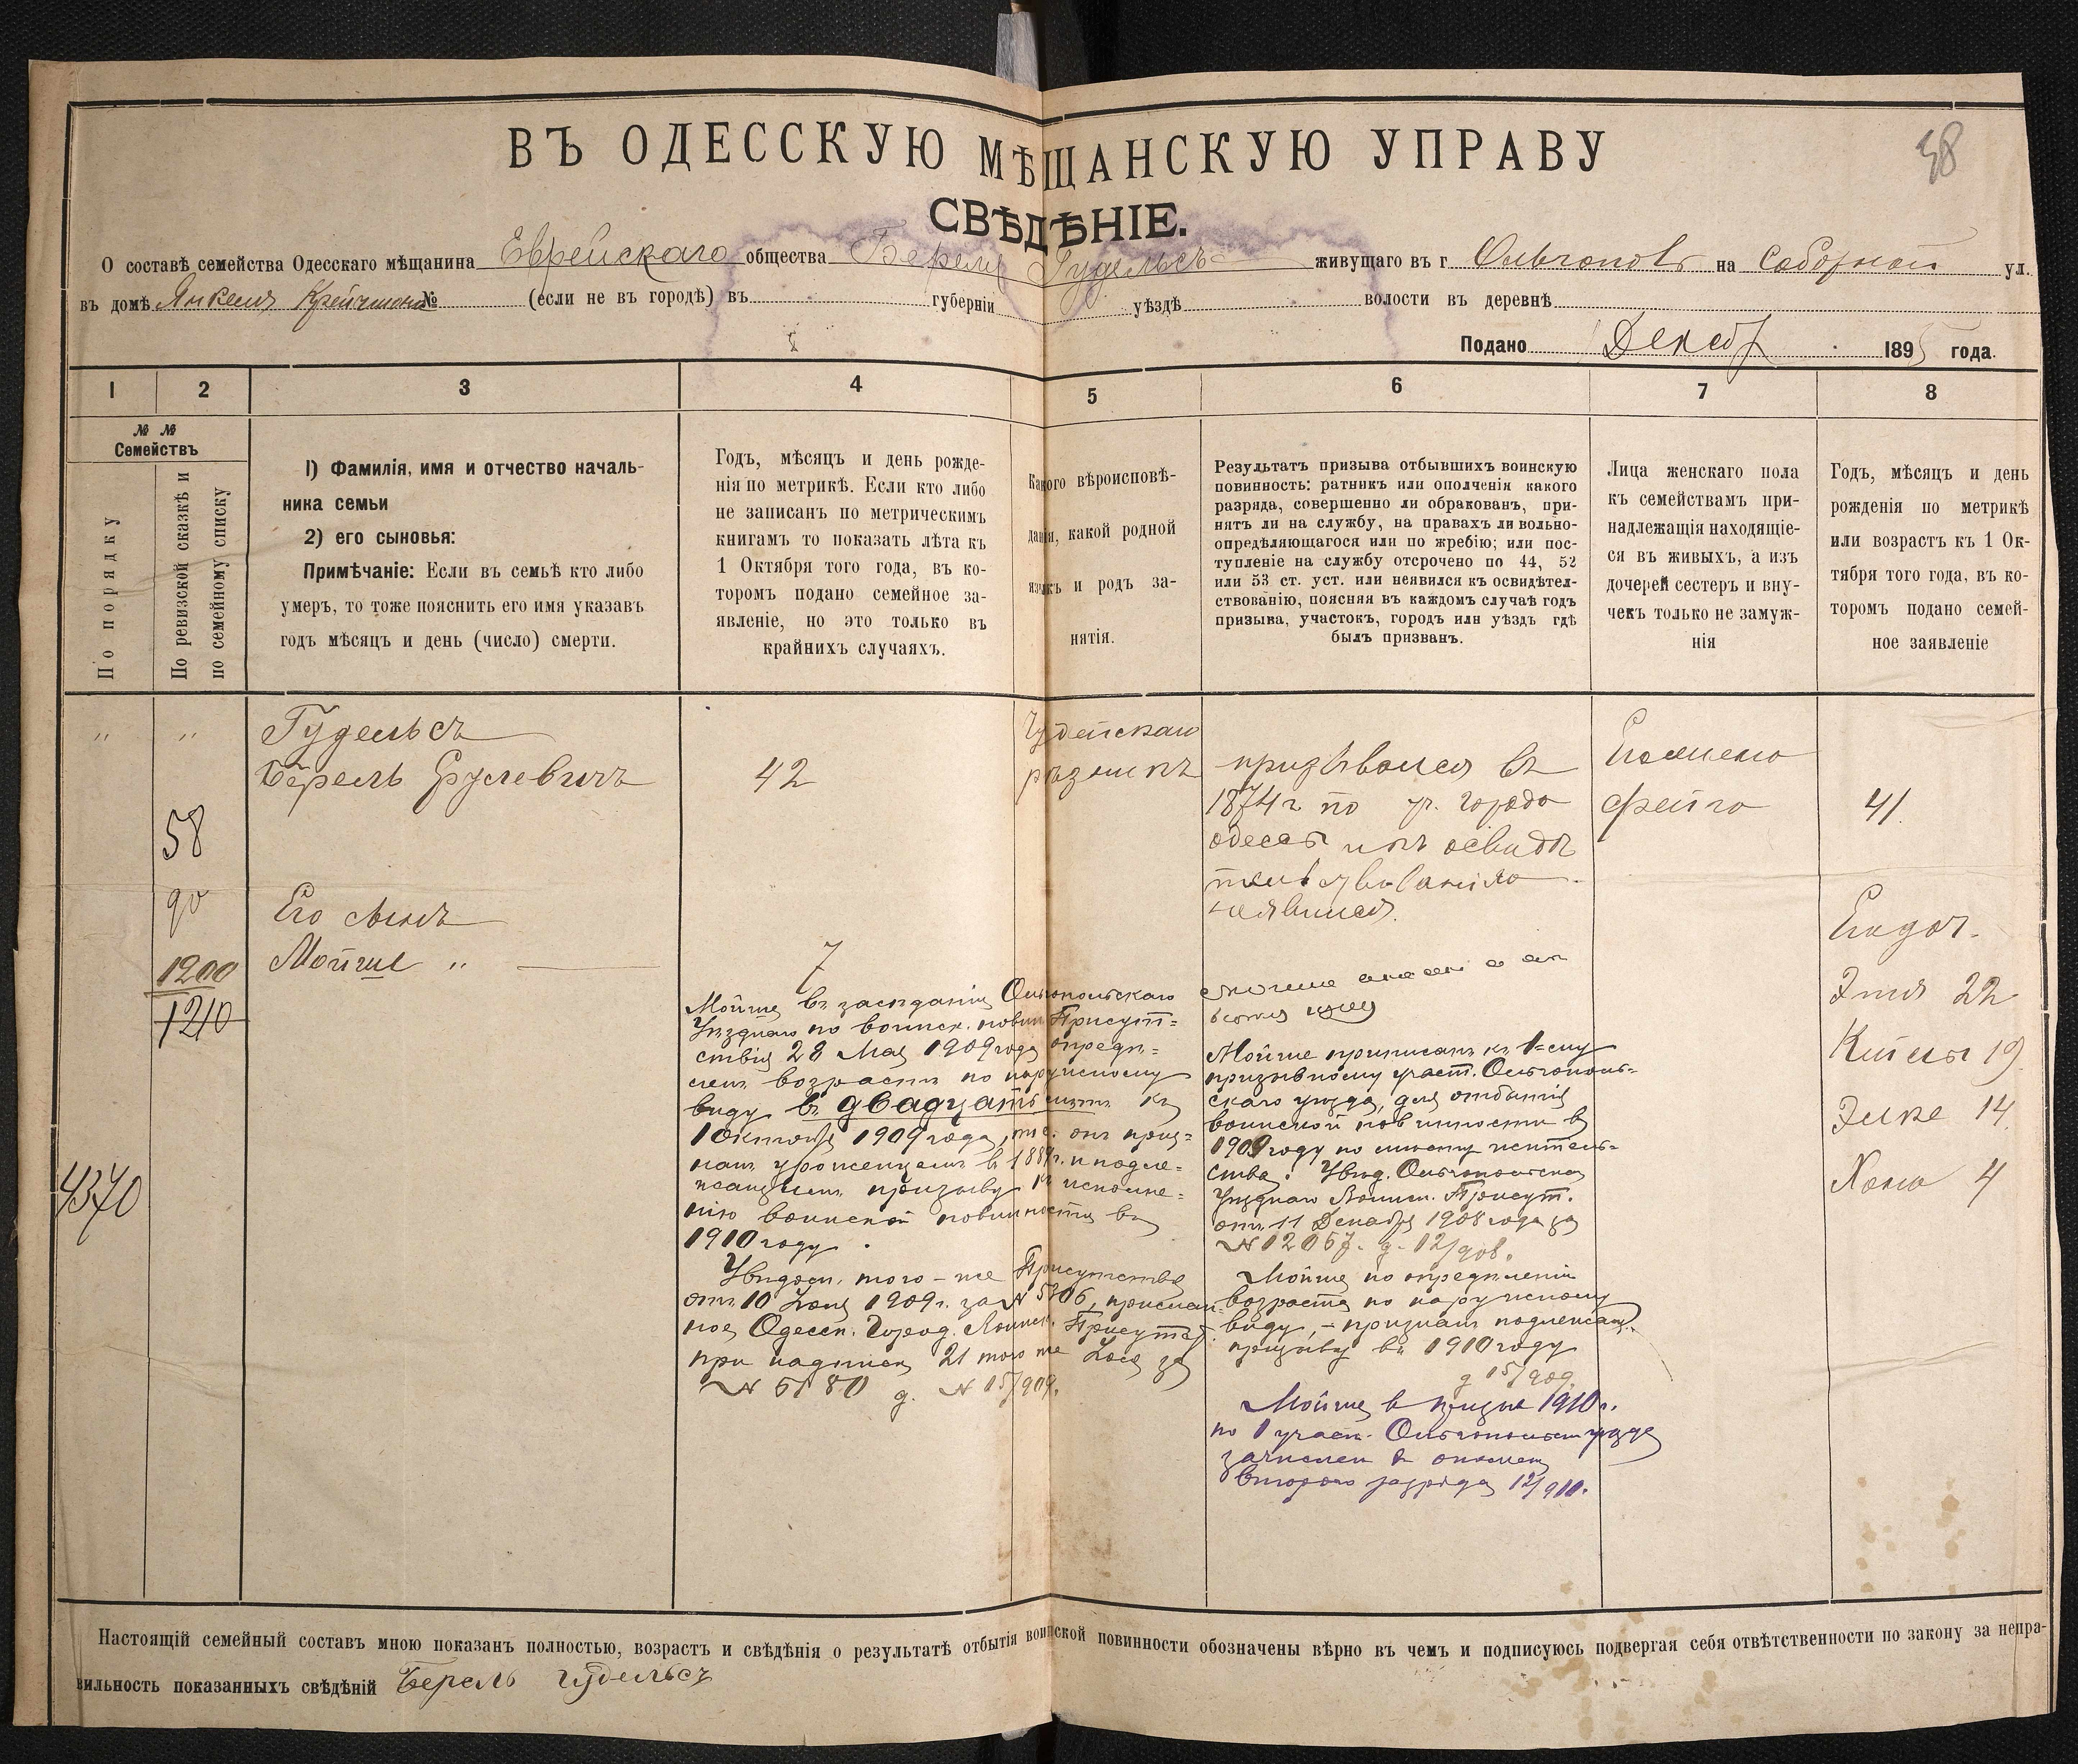 ВЪ ОДЕССКУЮ МѢЩАНСКУЮ УПРАВУ
58
СВѢДѢНІЕ.
О составѣ семейства Одесскаго мѣщанина Еврейскаго общества Береля Гудельсъ живущаго въ г. Ольгополѣ на Соборной ул.
въ домѣ Янкеля № (если не въ городѣ) въ губерніи уѣздѣ волости въ деревнѣ
Подано Декаб 1895 года.
1 2 3 4 5 6 7 8
№ № Семействъ
По порядку
По ревизской сказкѣ и по семейному списку
1) Фамилія, имя и отчество началь-
ника семьи
2) его сыновья:
Примѣчаніе: Если въ семьѣ кто либо
умеръ, то тоже пояснить его имя указавъ
годъ мѣсяцъ и день (число) смерти.
Годъ, мѣсяцъ и день рожде-
нія по метрикѣ. Если кто либо
не записанъ по метрическимъ
книгамъ то показать лѣта къ
1 Октября того года, въ ко-
торомъ подано семейное за-
явленіе, но это только въ
крайнихъ случаяхъ.
Какого вѣроисповѣ-
данія, какой родной
языкъ и родъ за-
нятія.
Результатъ призыва отбывшихъ воинскую
повинность: ратникъ или ополченія какого
разряда, совершенно ли обракованъ, при-
нятъ ли на службу, на правахъ ли вольно-
опредѣляющагося или по жребію; или пос-
тупленіе на службу отсрочено по 44, 52
или 53 ст. уст. или неявился къ освидѣтел-
ствованію, поясняя въ каждомъ случаѣ годъ
призыва, участокъ, городъ или уѣздъ гдѣ
былъ призванъ.
Лица женскаго пола
къ семействамъ при-
надлежащія находящіе-
ся въ живыхъ, а изъ
дочерей сестеръ и вну-
чекъ только не замуж-
нія
Годъ, мѣсяцъ и день
рожденія по метрикѣ
или возрастъ къ 1 Ок-
тября того года, въ ко-
торомъ подано семей-
ное заявленіе
" "
Гудельсъ
Берель Срулевичъ
42
Іудейскаго
рѣзникъ
призывался въ
1874 г по уч. города
одессы
неявился.
Его жена
Фейга
41
58
90
1200
1210
4370
Его сынъ
Мойше "
7
Мойше въ засѣданіи Ольгопольскаго
Уѣзднаго по воинск. повин. Присут=
ствія 28 Мая 1909 года опредѣ=
ленъ возрастъ по наружному
виду въ двадцать лѣтъ къ
1 октября 1909 года, т.е. онъ приз=
нанъ урожденцемъ въ 1889 г. и подле=
жащимъ призыву къ исполне=
нію воинской повинности въ
1910 году.
Увѣдом. того-же Присутствія
отъ 10 Іюня 1909 г. за № 5306, прислан=
ное Одесск. Город. Воинск. Присутст.
при надписи 21 того же Іюня за
№ 5180 д. № 15/909.
Мойше приписанъ къ 1=ому
призывному участ. Ольгополь=
скаго уѣзда, для отбытія
воинской повинности въ
1909 году по мѣсту житель=
ства. Увѣд. Ольгопольскаго
Уѣзднаго Воинск. Присут.
отъ 11 Декабря 1908 года за
№ 12057. д. 12/908.
Мойше по опредѣленіи
возраста по наружному
виду, – признанъ подлежащ.
призыву въ 1910 году
д 15/909.
Мойше въ призывѣ 1910 г.
по 1 участ. Ольгопольскаго уѣзда
зачисленъ въ ополчен.
второго разряда 12/910.
Его доч.
Этя 22
19
14
Хана 4
Настоящій семейный составъ мною показанъ полностью, возрастъ и свѣдѣнія о результатѣ отбытія воинской повинности обозначены вѣрно въ чемъ и подписуюсь подвергая себя отвѣтственности по закону за непра-
вильность показанныхъ свѣдѣній Берель Гудельсъ